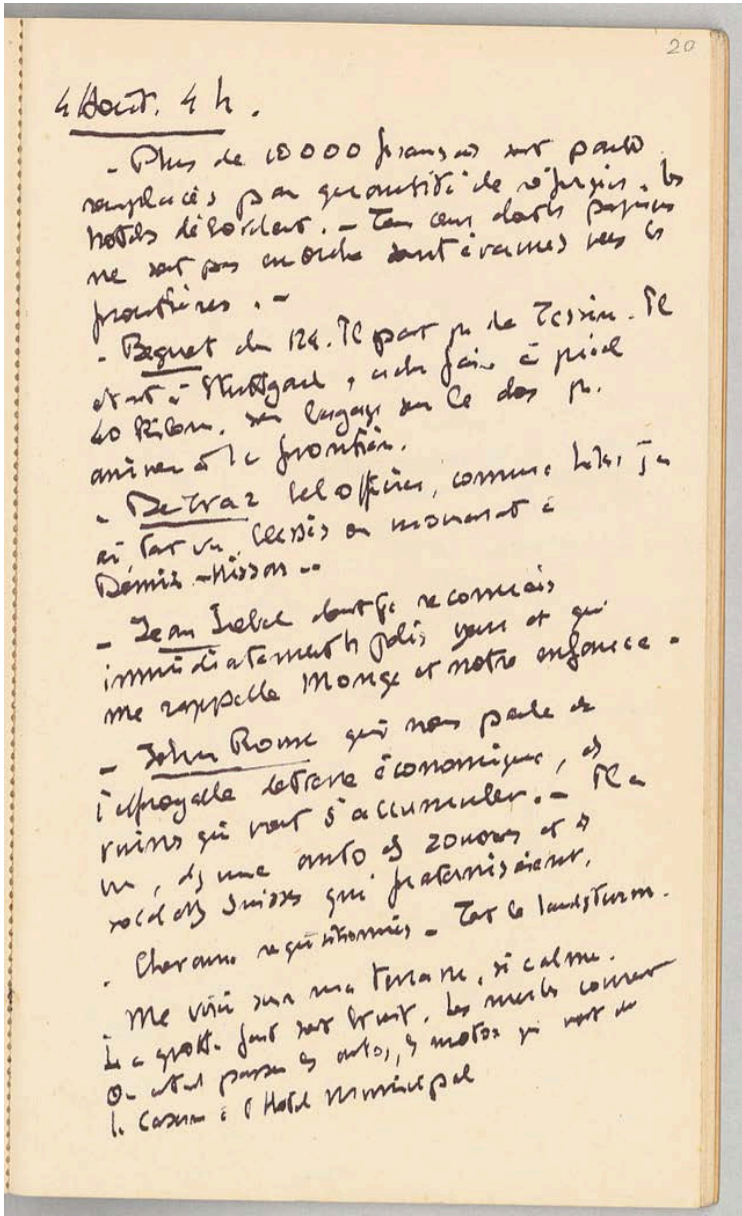 20
4 Août. 4 h.
- Plus de 10000 français sont partis
remplacés par quantité de réfugiés. Les
hotels débordent. - Tous ceux dont les papiers
ne sont pas en ordre sont évacués vers les
frontières. -
- Baguet du 124. Il part pr le Tessin. Il
était à Stuttgart, a du faire à pied
40 kilom. ses bagages sur le dos pr.
arriver à la frontière.
- De Traz bel officier, comme
ai tant vu
- Jean dont je reconnais
immédiatement les jolis yeux et qui
me rappelle Monge et notre enfance -
- John Romse qui nous parle de
l'effroyable détresse économique, des
ruines qui vont s'accumuler. - Il a
vu, ds une auto des zouaves et des
soldats suisses qui fraternisaient.
- Chevaux réquisitionnés - Tout le landsturm.
- Me voici sur ma terrasse, si calme.
La grotte fait son bruit. Les merles courent
On entend passer les autos, les motos qui vont de
la Caserne à l'Hotel Municipal